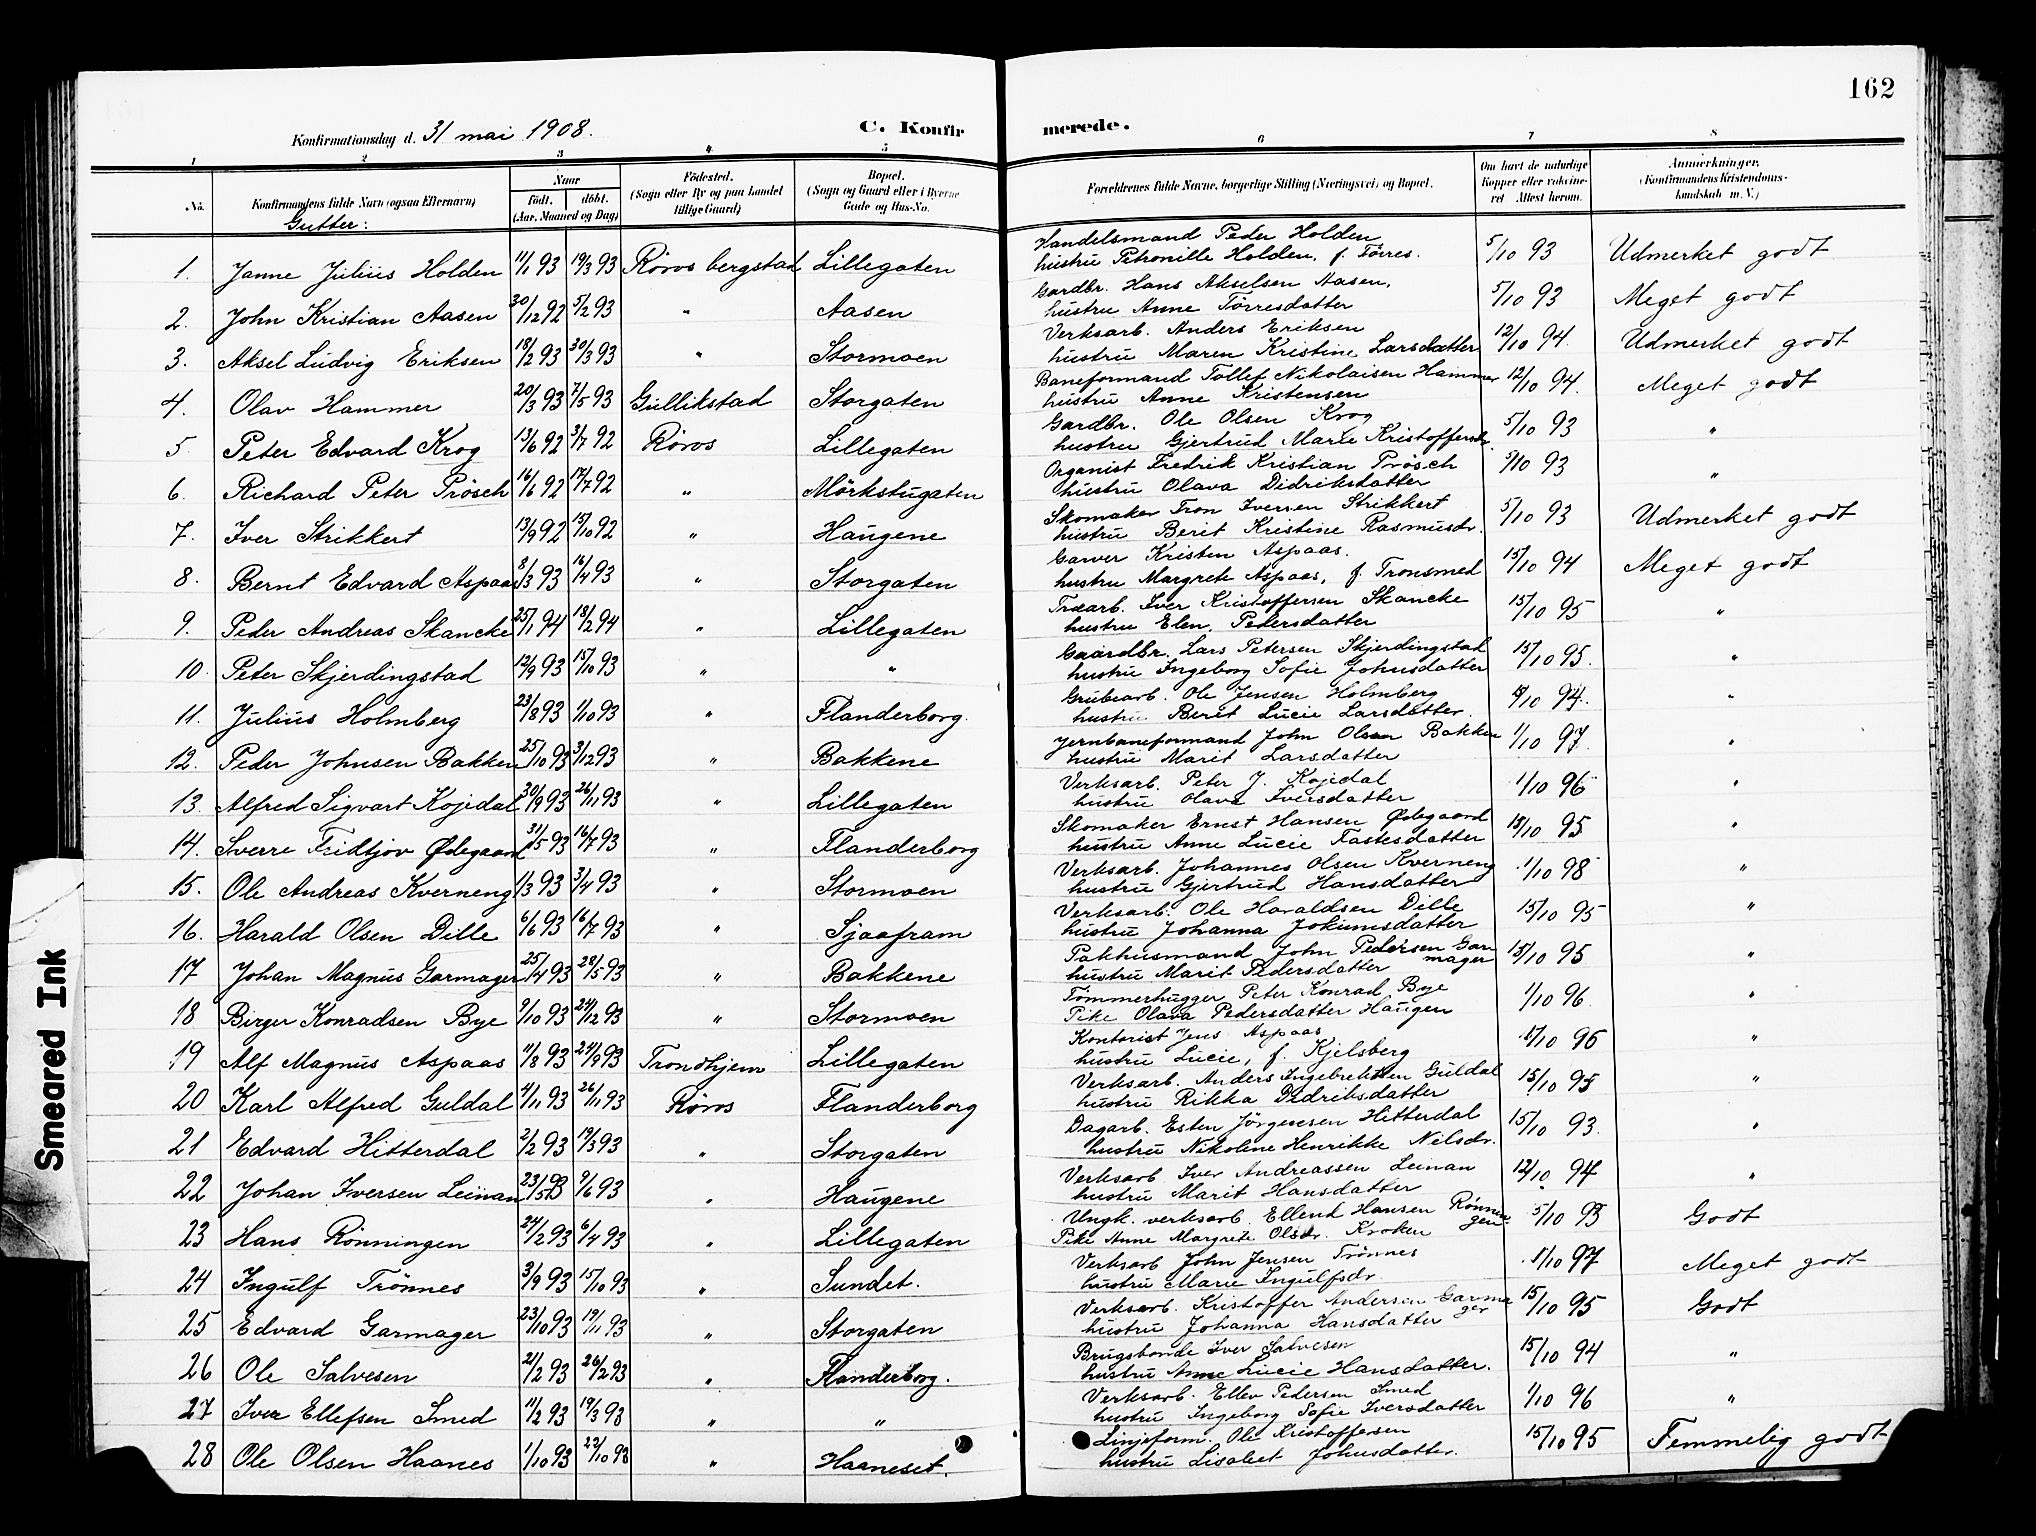 162
Konfirmationsdag d. 31 mai 1908.
C. Konfirmerede.
1 2 3 4 5 6 7 8
No. Konfirmandens fulde Navn (ogsaa Efternavn) Naar født. døbt. (Aar, Maaned og Dag) Fødested. (Sogn eller By og paa Landet tillige Gaard) Bopæl. (Sogn og Gaard eller i Byerne Gade og Hus-No. Forældrenes fulde Navne, borgerlige Stilling (Næringsvei) og Bopæl. Om havt de naturlige Kopper eller vaksineret Attest herom. Anmerkninger. (Konfirmandens Kristendomskundskab m. V.)
Gutter:
1. Janne Julius Holden 11/1 93 19/3 93 Röros bergstad Lillegaten Handelsmand Peder Holden 5/10 93 Udmerket godt
hustru Petronille Holden, f. Törres.
2. John Kristian Aasen 30/12 92 5/2 93 " Aasen Gardbr. Hans Akselsen Aasen, 5/10 93 Meget godt
hustru Anne Törresdatter
3. Aksel Ludvig Eriksen 18/2 93 30/3 93 " Stormoen Verksarb. Anders Eriksen 12/10 94. Udmerket godt
hustru Maren Kristine Larsdatter
4 Olav Hammer 20/3 93 7/5 93 Gullikstad Storgaten Baneformand Tollef Nikolaisen Hammer 12/10 94. Meget godt
hustru Anne Kristensen
5 Peter Edvard Krog 13/6 92 3/7 92 Röros Lillegaten Gardbr. Ole Olsen Krog 5/10 93 "
hustru Gjertrud Marie Kristoffersdr.
6. Richard Peter Prösch 16/6 92 17/7 92 " Mörkstugaten Organist Fredrik Kristian Prösch 5/10 93 "
hustru Olava Didriksdatter
7. Iver Strikkert 13/9 92 15/10 92 " Haugene Skomaker Tron Iversen Strikkert 5/10 93 Udmerket godt
hustru Berit Kristine Rasmusdr.
8. Bernt Edvard Aspaas 8/3 93 16/4 93 " Storgaten Garver Kristen Aspaas. 15/10 94 Meget godt
hustru Margrete Aspaas, f. Tronsmed
9. Peder Andreas Skancke 25/1 94 18/2 94 " Lillegaten Træarb. Iver Kristoffersen Skancke 15/10 95 "
hustru Elen, Pedersdatter
10. Peter Skjerdingstad 12/9 93 15/10 93 " " Gaardbr. Lars Petersen Skjerdingstad 15/10 95. "
hustru Ingeborg Sofie Johnsdatter
11. Julius Holmberg 23/8 93 1/10 93 " Flanderborg. Grubearb. Ole Jensen Holmberg /10 94. "
hustru Berit Lucie Larsdatter.
12. Peder Johnsen Bakken 25/10 93 3/12 93 " Bakkene Jernbaneformand John Olsen Bakken 1/10 97. "
hustru Marit Larsdatter
13. Alfred Sigvart Kojedal 30/9 93 26/11 93 " Lillegaten Verksarb. Peter J. Kojedal 1/10 96 "
hustru Olava Iversdatter
14. Sverre Fridtjov Ødegaard 31/5 93 16/7 93 " Flanderborg Skomaker Ernst Hansen Ødegaard 15/10 95 "
hustru Anne Lucie Fastesdatter
15. Ole Andreas Kverneng 1/3 93 3/4 93 " Stormoen Verksarb. Johannes Olsen Kverneng 1/10 98 "
hustru Gjertrud Hansdatter
16. Harald Olsen Dille 6/6 93 16/7 93 " Sjaafram Verksarb. Ole Haraldsen Dille 15/10 95 "
hustru Johanna Jokumsdatter
17 Johan Magnus Garmager 25/4 93 28/5 93 " Bakkene Pakhusmand John Pedersen Garmager 15/10 95 "
hustru Marit Pedersdatter
18 Birger Konradsen Bye 9/10 93 24/12 93 " Stormoen Tömmerhugger Peter Konrad Bye 1/10 96. "
Pike Olava Pedersdatter Haugen
19 Alf Magnus Aspaas 11/8 93 24/9 93 Trondhjem Lillegaten Kontorist Jens Aspaas 1/10 96 "
hustru Lucie, f. Kjelsberg
20 Karl Alfred Guldal 4/11 93 26/11 93 Röros Flanderborg Verksarb. Anders Ingebrektsen Guldal 15/10 95 "
hustru Rikka Didriksdatter
21 Edvard Hitterdal 2/2 93 19/3 93 " Storgaten Dagarb. Esten Jörgensen Hitterdal 15/10 93. "
hustru Nikoline Henrikke Nilsdr.
22 Johan Iversen Leinan 23/5 93 9/6 93 " Haugene Verksarb Iver Andreassen Leinan 12/10 94 "
hustru Marit Hansdatter
23 Hans Rönningen 24/2 93 6/4 93 " Lillegaten Ungk. verksarb. Ellend Hansen Rönningen 5/10 93 Godt
Pike Anne Margrete Olsdr. Kroken
24 Ingulf Trönnes 3/9 93 15/10 93 " Sundet. Verksarb John Jensen Trönnes 1/10 97 Meget godt
hustru Marie Ingulfsdr
25 Edvard Garmager 23/10 93 19/11 93 " Storgaten Verksarb. Kristoffer Andersen Garmager 15/10 95 Godt
hustru Johanna Hansdatter
26 Ole Salvesen 21/2 93 26/2 93 " Flanderborg. Brugsbonde Iver Salvesen 15/10 94 "
hustru Anne Lucie Hansdatter.
27 Iver Ellefsen Smed 11/2 93 19/3 93 " " Verksarb. Ellev Pedersen Smed 1/10 96 "
hustru Ingeborg Sofie Iversdatter
28 Ole Olsen Haanes 1/10 93 22/10 93 " Haaneset. Linjeform. Ole Kristoffersen 15/10 95 Temmelig godt
hustru Lisabet Johnsdatter.
Smeared Ink